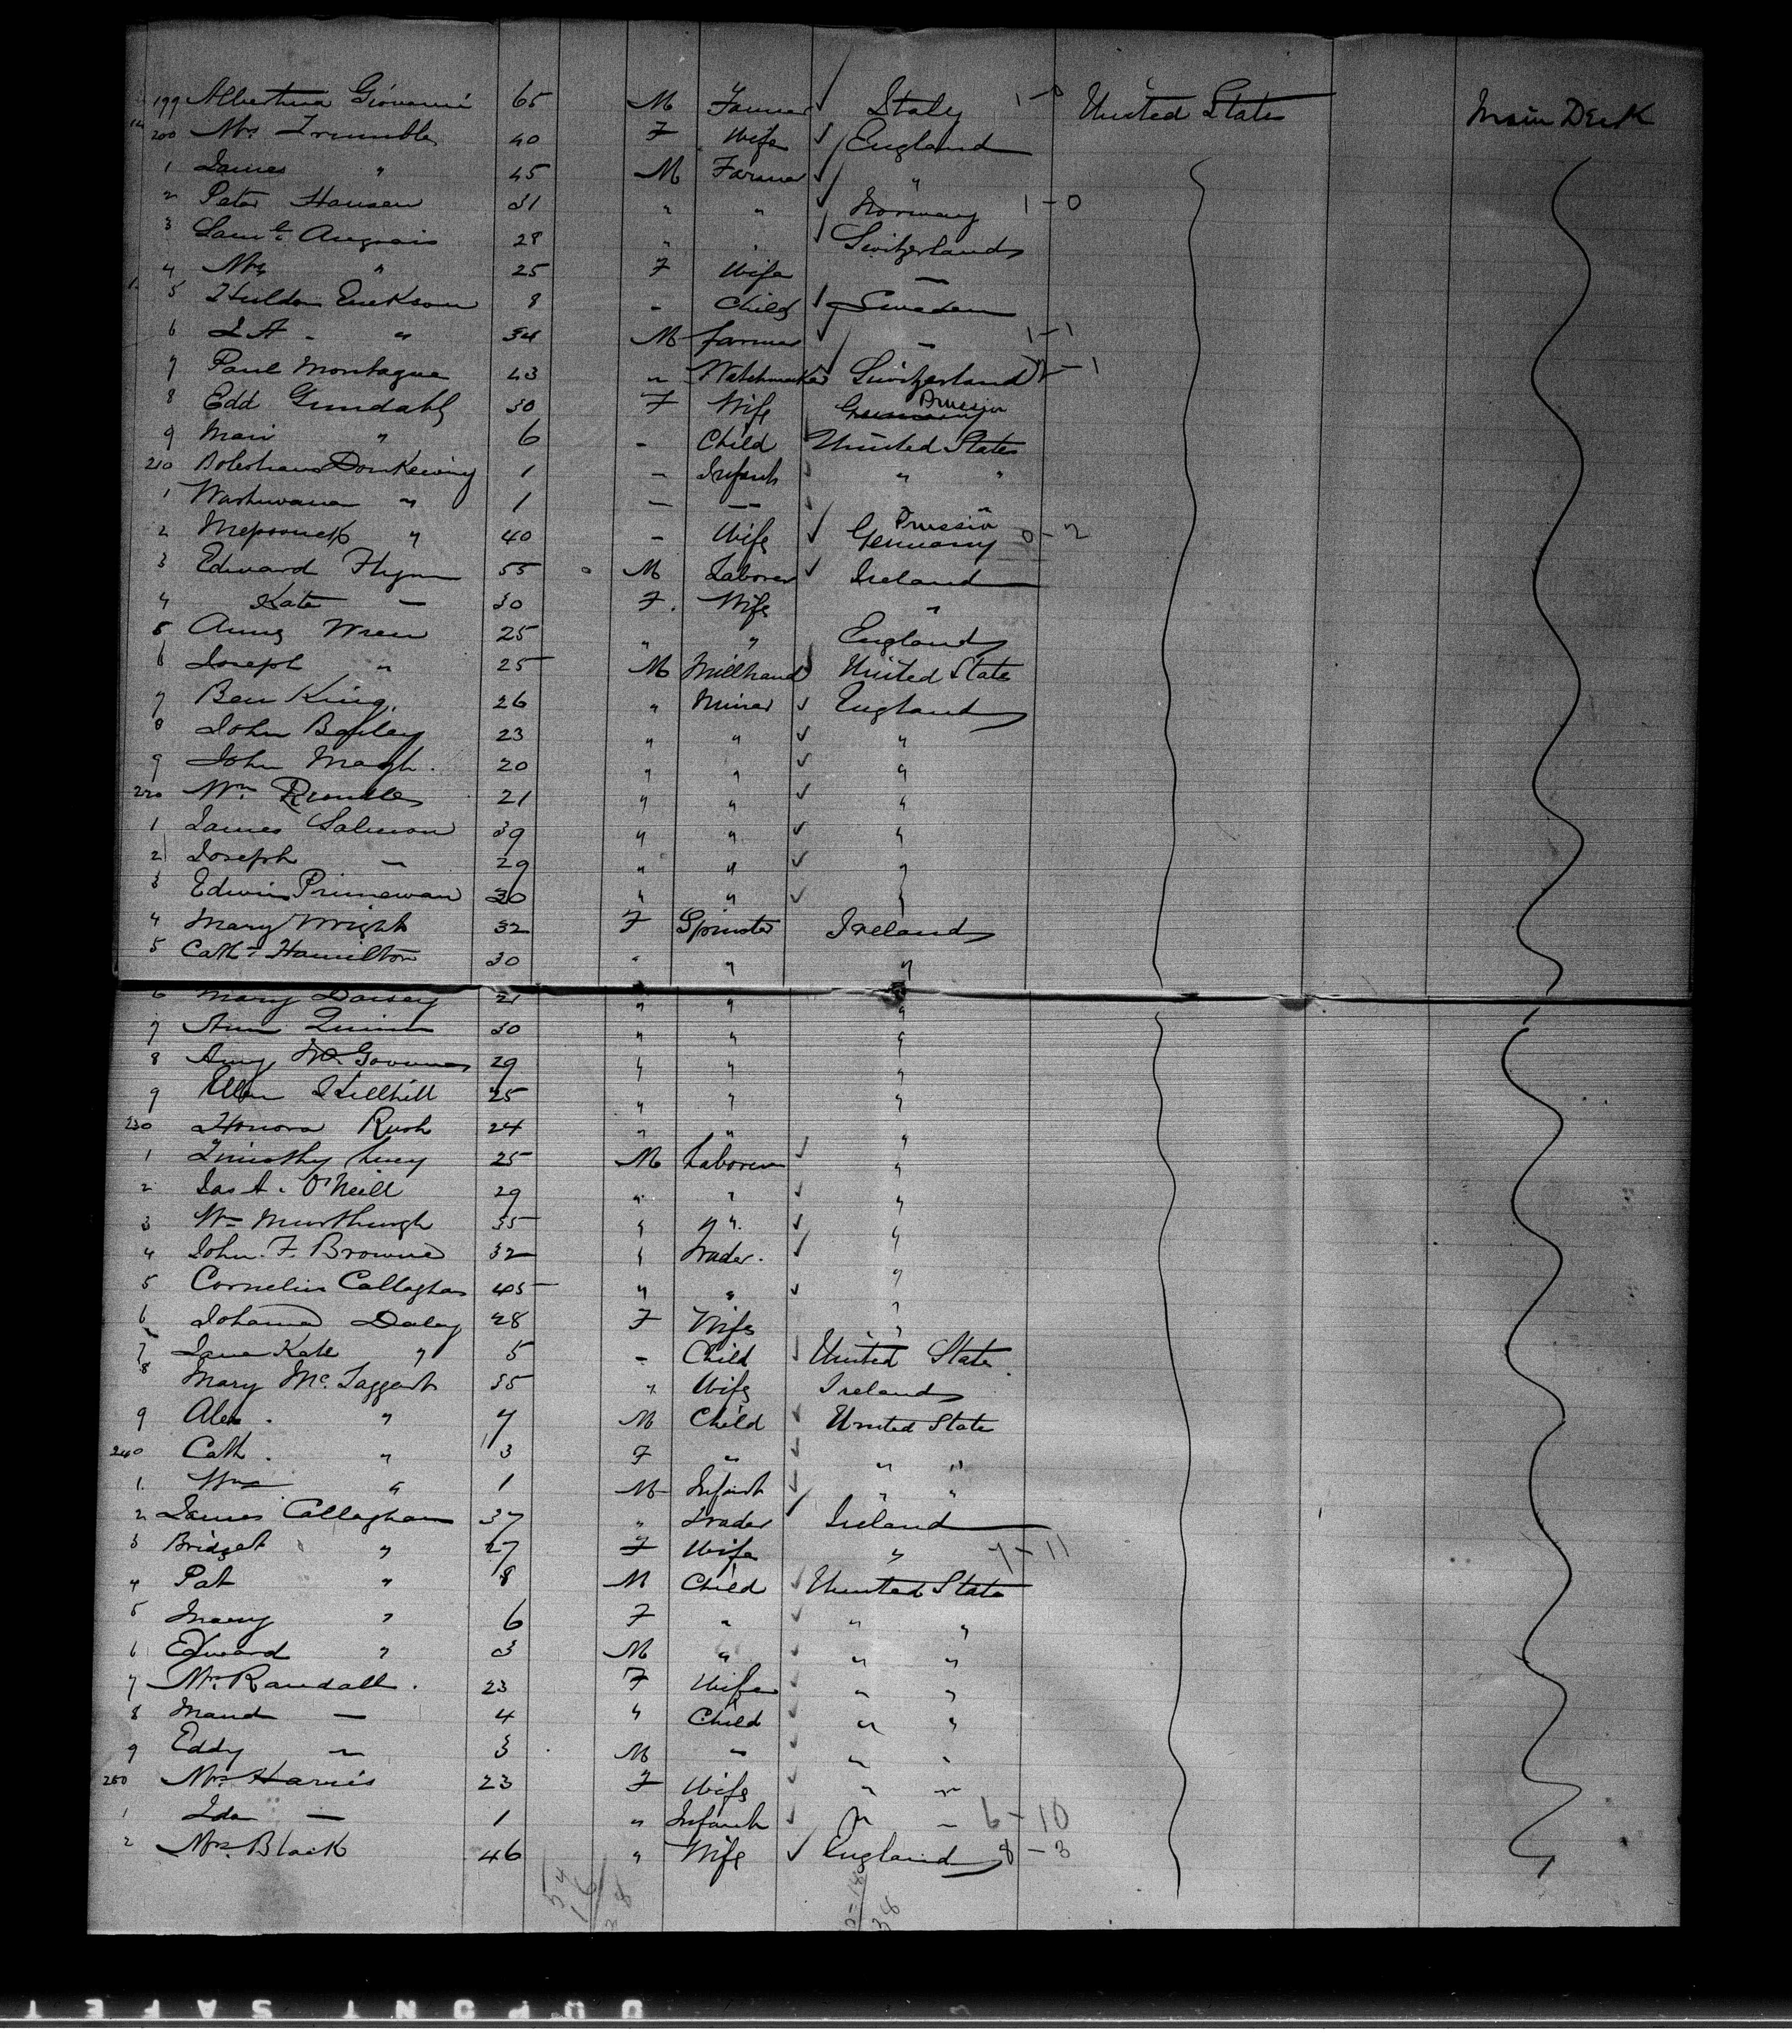 199 Albertina Giovanni 65 M Farmer Italy 1-0 United States Main Deck
200 Mrs Trumble 40 F Wife England
1 James " 45 M Farmer "
2 Peter Hansen 31 " " Norway 1-0
3 Saml 28 " " Switzerland
4 Mrs " 25 F Wife —
5 Hulda Erickson 8 - Child Sweden
6 " 34 M farmer — 1-1
7 Paul Montague 43 " Watchmaker Switzerland -1
8 Edd Gundahl 30 F Wife Germany Prussia
9 Mari " 6 - Child United States
210 1 — Infant " "
1 " 1 — —
2 " 40 - Wife Prussia Germany 0-2
3 Edward Flynn 55 M Laborer Ireland
4 Kate — 30 F. Wife "
5 Wren 25 " " England
6 Joseph " 25 M Millhand United States
7 Ben King. 26 " Miner England
8 John 23 " " "
9 John 20 " " "
220 Wm 21 " " "
1 James Salmon 39 " " "
2 Joseph — 29 " " "
3 Edwin 30 " " "
4 Mary Wright 32 F Spinster Ireland
5 Cath Hamilton 30 " " "
6 Mary 21 " " "
7 Ann Quinn 30 " " "
8 29 " " "
9 Ellen 25 " " "
230 Honora Rush 24 " " "
1 Timothy Lucy 25 M Laborer "
2 Jas A. O'Neill 29 " " "
3 Wm 35 " " "
4 John. F. Browne 32 " Trader. "
5 Cornelius Callaghan 45 " " "
6 Johanna Daley 28 F Wife "
7 Jane Kate " 5 - Child United State
8 Mary Mc Taggart 35 " Wife Ireland
9 Alex. " 7 M Child United State
240 Cath. " 3 F " " "
1. Wm " 1 M Infant " "
2 James Callaghan 37 " Trader Ireland
3 Bridget " 27 F Wife " 7-11
4 Pat " 8 M Child United State
5 Mary " 6 F " " "
6 Edward " 3 M " " "
7 Mrs Randall. 23 F Wife " "
8 Maud — 4 " Child " "
9 Eddy — 3 M " " "
250 Mrs Harris 23 F Wife " "
1 Ida — 1 " Infant " " 6-10
2 Mrs. Black 46 " Wife England 8-3
54
16
38
38